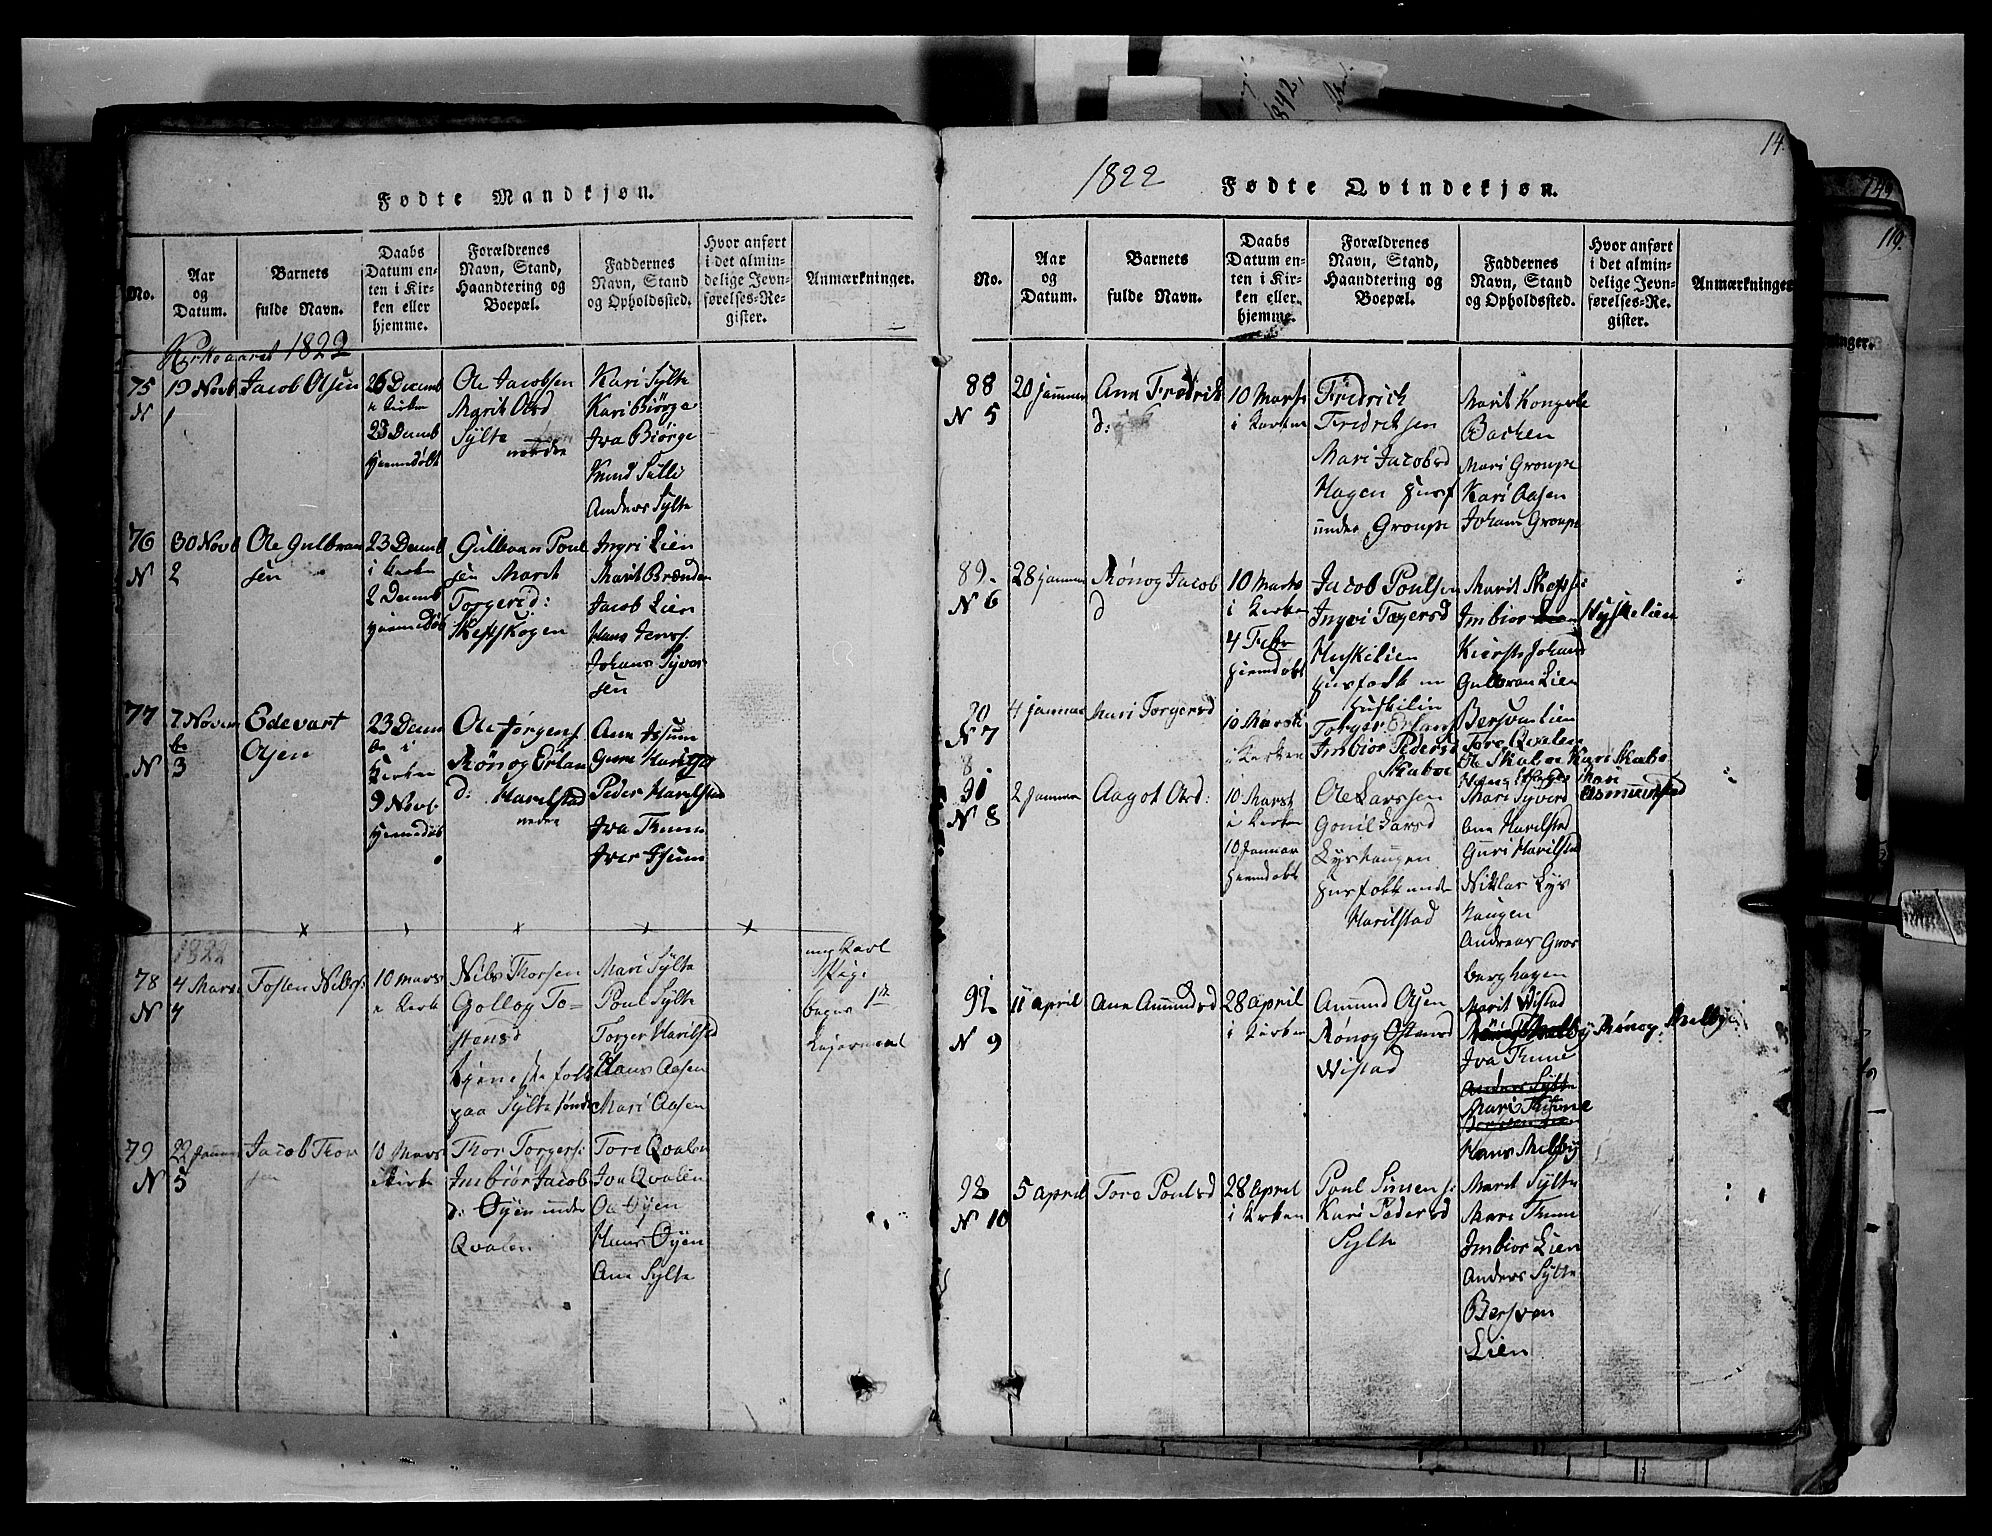 Fødte Mandkjøn.
No.
Aar
og
Datum.
Barnets
fulde Navn.
Daabs
Datum en-
ten i Kir-
ken eller
hjemme.
Forældrenes
Navn, Stand,
Haandtering og
Boepæl.
Faddernes
Navn, Stand
og Opholdssted.
Hvor anført
i det almin-
delige Jevn-
førelses-Re-
gister.
Anmærkninger.
Kirkeaaret 1822
75
N 1
19 Novb
Jacob Olsen
26 Decemb
i Kirken
23 Decemb
Hjemmedøbt
Ole Jacobsen
Marit Olsd
Sylte
nedre
Kari Sylte
Kari Biørge
Iva Biørge
Knud Sylte
Anders Sylte
76
N 2
30 Novb
Ole Gulbran
sen
23 Decemb
i Kirken
2 Decemb
Gulbran Poul
sen Marit
Torgersd:
Skefskogen
Ingri Lien
Marit Brænden
Jacob Lien
Hans Jenss.
Johans Syver
sen
77
N 3
7 Novem
b
Edevart
Olsen
23 Decem
b i
Kirken
9 Novb.
Ole Jørgens.
Rønog Erlan
d: Harilstad
nedre
Ane Isum
Gunu Harilsta
Peder Harilstad
Iva Thune
Iver Isum
1822
78
N 4
4 Mars
Tosten Nilss:
10 Mars
i Kirk
Nils Thorsen
Gollog To-
stensd
tjeneste folk
paa Sylte søndre
Mari Sylte
Poul Sylte
Torger Harilstad
Hans Aasen
Mari Aasen
ung Karl
Pige
begge 1ste
Leiermaal
79
N 5
22 Januar
Jacob Thor
sen
10 Mars
i Kirke
Thor Torgers:
Imbiør Jacob
d: Øyen under
Qvalen
Tore Qvalen
Iva Qvalen
Ole Øyen
Hans Øyen
Ane Sylte
1822
Fødte Qvindekjøn.
14
No.
Aar
og
Datum.
Barnets
fulde Navn.
Daabs
Datum en-
ten i Kir-
ken eller
hjemme.
Forældrenes
Navn, Stand,
Haandtering og
Boepæl.
Faddernes
Navn, Stand
og Opholdssted.
Hvor anført
i det almin-
delige Jevn-
førelses-Re-
gister.
Anmærkninger
88
N 5
20 januar
Ane Fredrik
d:
10 Mars
i Kirken
Fredrich
Fredriksen
Mari Jacobsd
Hagen Husf
under Groupe
Marit Kongsle
Backen
Mari Groupe
Kari Aasen
Johans Groupe
89
N 6
28 januar
Rønog Jacob
d
10 Mars
i Kirken
4 Febr
hiemdøbt
Jacob Poulsen
Ingri Torgersd
Huskelien
Husfolk
Huskelien
Marit Skefs
Imbiør
Huskelien
Kiersti Johansd
Gulbran Lien
Bersven Lien
90
N 7
4 januar
Mari Torgersd
10 Mars i
Kirken
Torger Erlans
Imbiør Pedersd
Skaboe
Tore Qvalen
Ole Skaboe Kari Skabo
91
N 8
2 januar
Aagot Olsd:
10 Mars
i Kirken
10 Januar
hiemdøbt
Ole Larssen
Gonil Larsd
Lyshaugen
Husfolk under
Harilstad
Mari Syversd
Ane Harilstad
Guri Harilstad
Niklas Lys
haugen
Andreas Gros
berghagen
92
N 9
11 april
Ane Amundsd
28 april
i Kirken
Amund Olsen
Rønog Ostensd
Wistad
Marit Wistad
Rønog Melby
Iva Thune
Anders Sylte
Mari Thune
Hans Melby
93
N 10
5 april
Tore Poulsd
28 april
i Kirken
Poul Simens:
Kari Pedersd
Sylte
Marit Sylte
Mari Thune
Imbiør Lien
Anders Sylte
Bersven
Lien
119